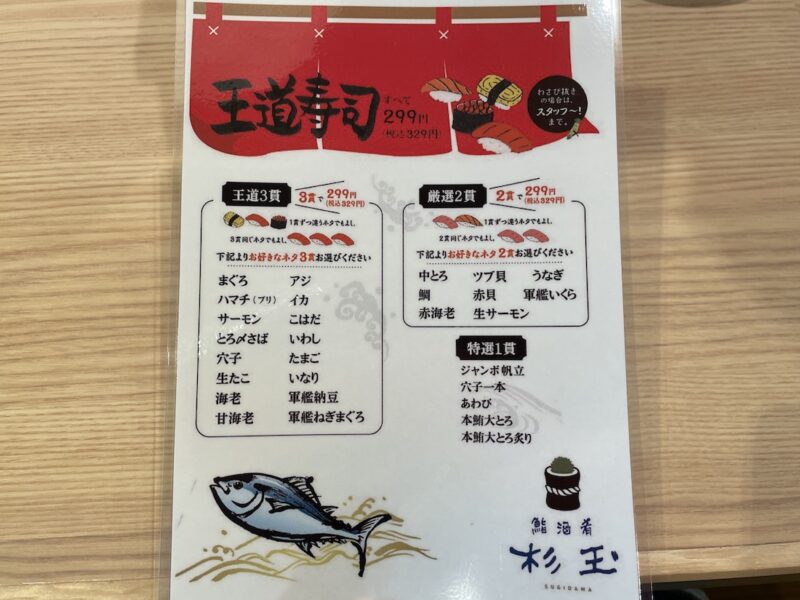 王道寿司
すべて
299円
(税込329円)
わさび抜き
の場合は、
スタッフ〜!
まで。
王道3貫
3貫で299円
(税込329円)
1貫ずつ違うネタでもよし、
3貫同じネタでもよし。
下記よりお好きなネタ3貫お選びください
まぐろ アジ
ハマチ(ブリ) イカ
サーモン こはだ
とろ〆さば いわし
穴子 たまご
生たこ いなり
海老 軍艦納豆
甘海老 軍艦ねぎまぐろ
厳選2貫
2貫で299円
(税込329円)
1貫ずつ違うネタでもよし、
2貫同じネタでもよし。
下記よりお好きなネタ2貫お選びください
中とろ ツブ貝 うなぎ
鯛 赤貝 軍艦いくら
赤海老 生サーモン
特選1貫
ジャンボ帆立
穴子一本
あわび
本鮪大とろ
本鮪大とろ炙り
鮨 酒 肴
杉玉
SUGIDAMA